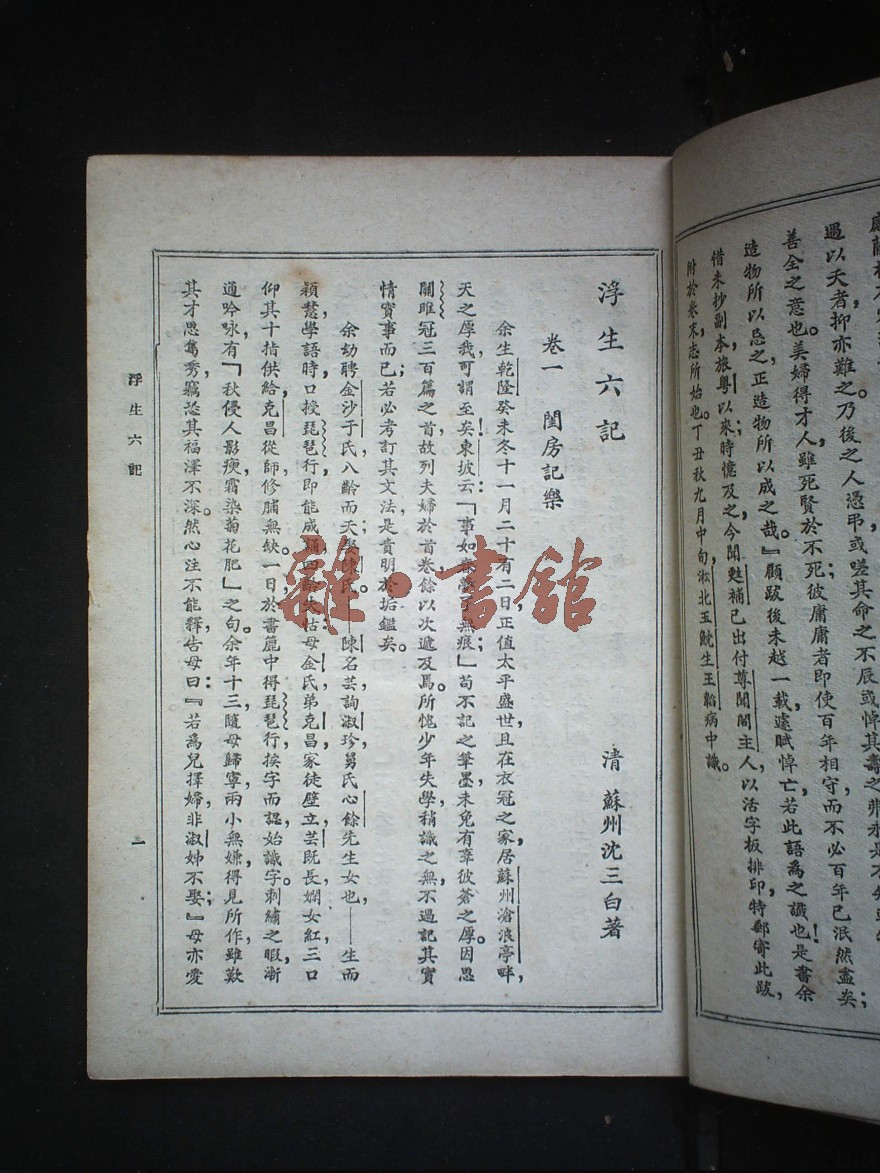 遇以天者抑亦難之乃後之人憑弔或嗟其命之不辰或悼其壽之弗永是不知
善全之意也。美婦得才人,雖死賢於不死彼庸庸者即使百年相守而不必百年已泯然盡矣;
造物所以忌之,正造物所以成之哉。』顧跋後未越一載,遽賦悼亡若此語爲之讖也!是書余
惜未抄副本,旅粵以來時憶及之,今聞甦補已出付尊聞閣主人,以活字板排印特郵寄此跋,
附於卷末志所始也。丁丑秋九月中旬,淞北玉魫生王韜病中識。
浮生六記
清 蘇州沈三白著
卷一 閨房記樂
余生乾隆癸未冬十一月二十有二日正值太平盛世且在衣冠之家居蘇州滄浪亭畔,
天之厚我可謂至矣!東坡云:「事如春夢了無痕」苟不記之筆墨,未免有辜彼蒼之厚。因思
關雎冠三百篇之首,故列夫婦於首卷餘以次遞及焉。所愧少年失學,稍識之無,不過記其實
情實事而已;若必考訂其文法,是責明於垢鑑矣。
余幼聘金沙于氏,八齡而夭;娶陳氏。——陳名芸,詢淑珍,舅氏心餘先生女也——生而
穎慧,學語時口授琵琶行,即能成誦。四齡失怙,母金氏,弟克昌,家徒壁立。芸既長,嫺女紅,三口
仰其十指供給,克昌從師修脯無缺。一日,於書簏中得琵琶行,挨字而認,始識字。刺繡之暇,漸
通吟咏,有「秋侵人影瘦,霜染菊花肥」之句。余年十三,隨母歸寧,兩小無嫌,得見所作,雖歎
其才思雋秀,竊恐其福澤不深。然心注不能釋,告母曰:『若爲兒擇婦,非淑姊不娶;』母亦愛
浮生六記
一
雜·書館